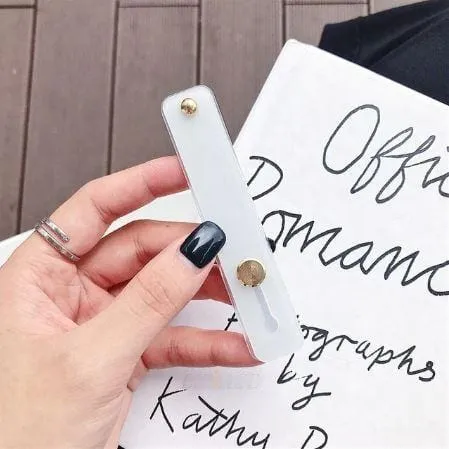 Offi
Romanc
ographs
by
Kathy D